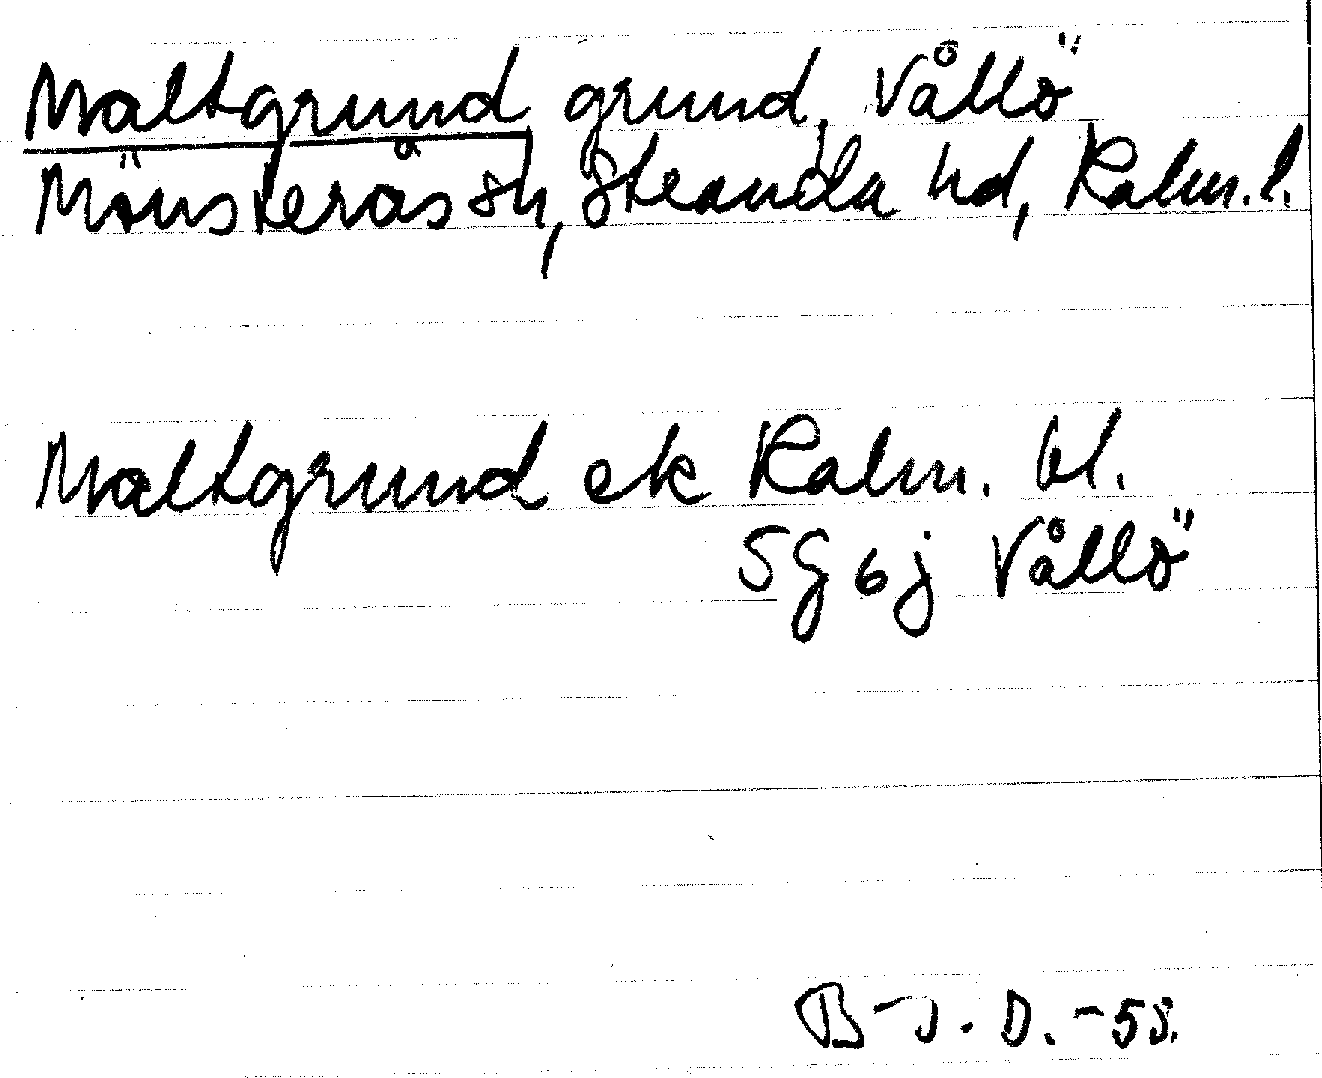 Maltgrund grund, Vållö
Mönsterås sn, Stranda hd, Kalm. l.
Maltgrund ek Kalm. bl.
5 G 6 j Vållö
B-J. D. -55.